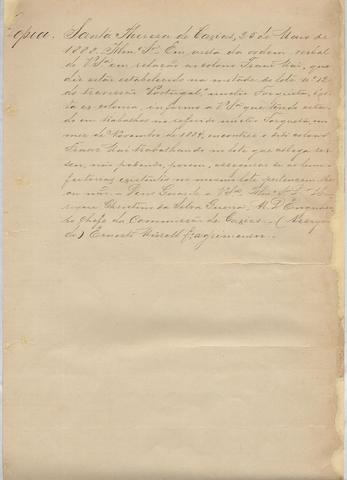 Copia. Santa Thereza de Caxias, 25 de Maio de
1888. Illmo. Sr. Em vista da ordem verbal
de V. Sa. em relação ao colono Franz Mai, que
diz estar estabelecido na metade do lote no. 12
da travessão "Portugal", nucleo Forqueta, d'es-
ta ex-colonia, informo a V. Sa. que tendo esta-
do em trabalhos no referido nucleo Forqueta, no
mez de Novembro de 1884, encontrei o dito colono
Franz Mai trabalhando no lote que allega ser
seu, não podendo, porem, assegurar se as bem-
feitorias existentes no mesmo lote pertencem-lhe
ou não. = Deus Guarde a V. Sa. Illmo. Sr. Dr.
Christino da Silva Guerra. M. D. Engenhei-
ro Chefe da Commissão de Caxias. = (Assigna-
do) Ernesto agrimensor.